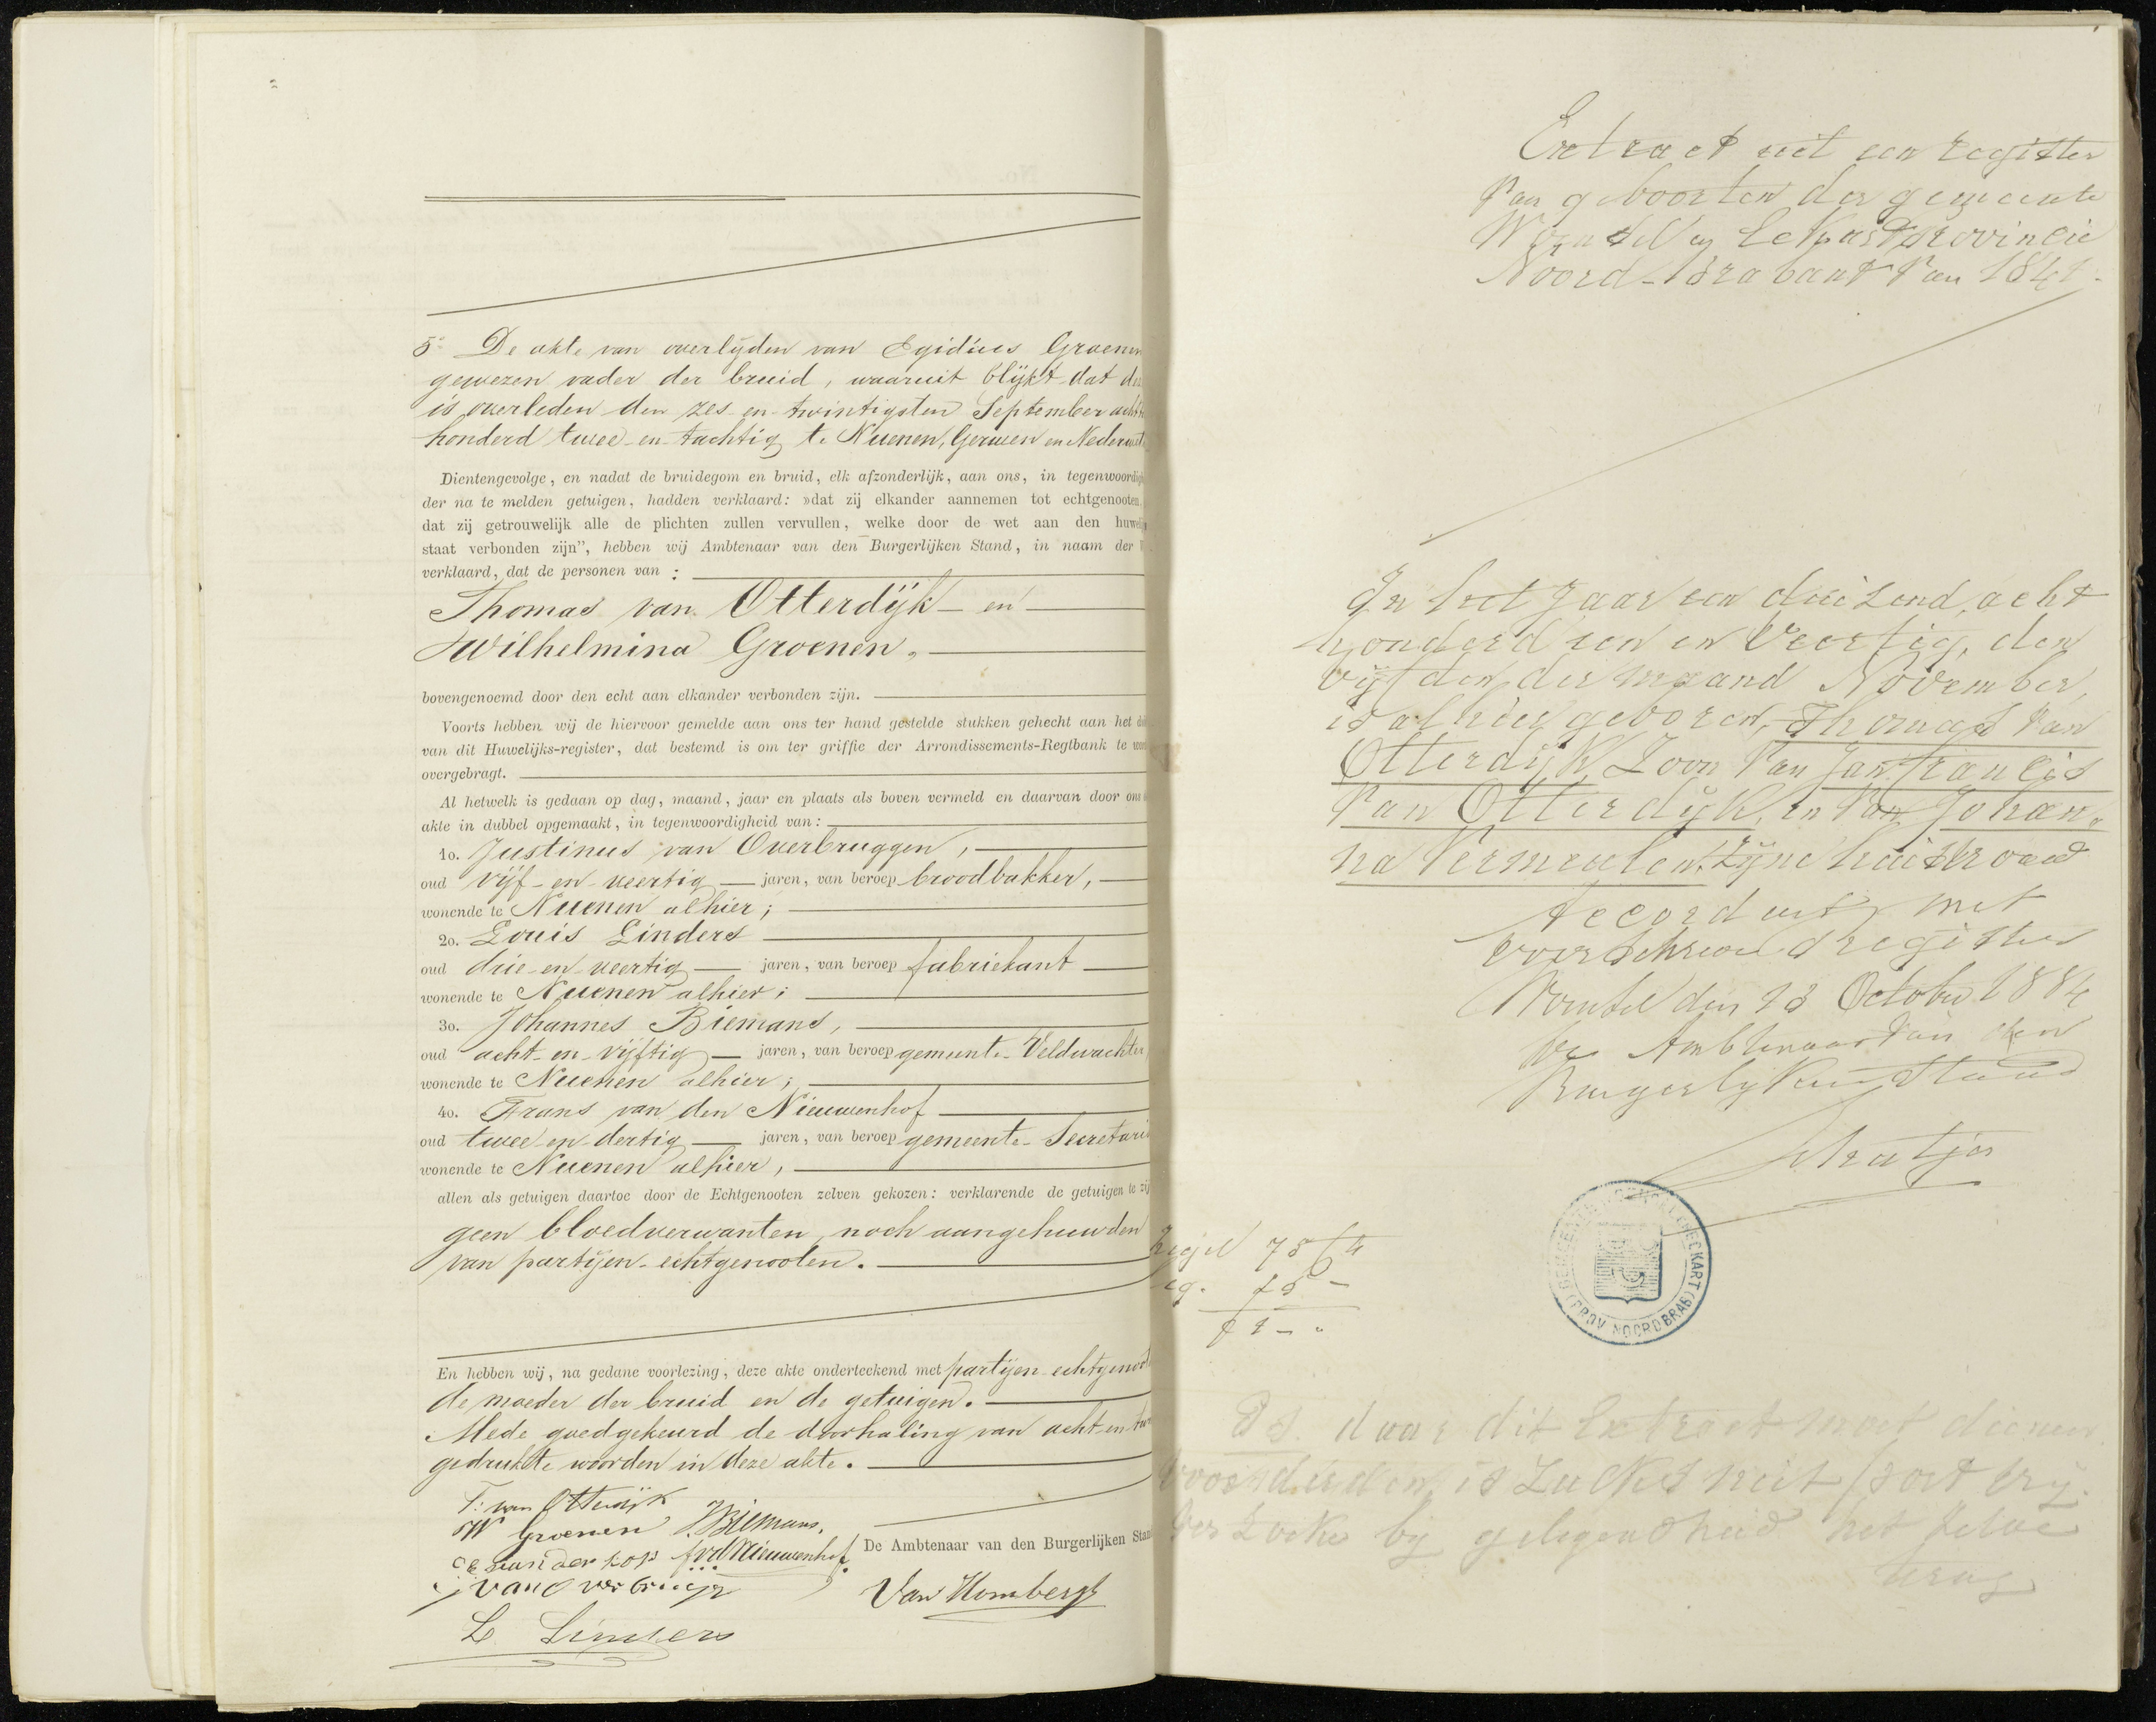 5° De akte van overlijden van Egidius Groenen
gewezen vader der bruid, waaruit blijkt dat de
is overleden den zes-en-twintigsten September acht
honderd twee-en-tachtig te Nuenen, Gerwen en Nederwet
Dientengevolge, en nadat de bruidegom en bruid, elk afzonderlijk, aan ons, in tegenwoordigh
der na te melden getuigen, hadden verklaard: »dat zij elkander aannemen tot echtgenooten
dat zij getrouwelijk alle de plichten zullen vervullen, welke door de wet aan den huwelij
staat verbonden zijn”, hebben wij Ambtenaar van den Burgerlijken Stand, in naam der
verklaard, dat de personen van :
Thomas van Otterdijk - en
Wilhelmina Groenen.
bovengenoemd door den echt aan elkander verbonden zijn.
Voorts hebben wij de hiervoor gemelde aan ons ter hand gestelde stukken gehecht aan het du
van dit Huwelijks-register, dat bestemd is om ter griffie der Arrondissements-Regtbank te wor
overgebragt.
Al hetwelk is gedaan op dag, maand, jaar en plaats als boven vermeld en daarvan door ons
akte in dubbel opgemaakt, in tegenwoordigheid van:
1o. Justinus van Overbruggen,
oud vijf-en-veertig jaren, van beroep broodbakker,
wonende te Nuenen alhier;
2o. Louis Linders
oud drie-en-veertig jaren, van beroep fabriekant
wonende te Nuenen alhier;
3o. Johannes Biemans,
oud acht-en-vijftig jaren, van beroep gemeente-Veldwachter
wonende te Nuenen alhier;
4o. Frans van den Nieuwenhof
oud twee-en-dertig jaren, van beroep gemeente-Secretari
wonende te Nuenen alhier,
allen als getuigen daartoe door de Echtgenooten zelven gekozen: verklarende de getuigen te zij
geen bloedverwanten, noch aangehuwden
van partijen-echtgenooten.
En hebben wij, na gedane voorlezing, deze akte onderteekend met partijen-echtgenoot
de moeder der bruid en de getuigen.
Mede goedgekeurd de doorhaling van acht-en-
gedrukte woorden in deze akte.
T: van Otterdijk
W Groenen J. Biemans.
f.v.d.Nieuwenhof
J van Overbrugge
De Ambtenaar van den Burgerlijken Stan
Van Hombergh
L Linders
Extract uit een register
van geboorten der gemeente
Woensel en Eckart provincie
Noord-Brabant van 1841.
In het Jaar een duizend, acht
honderd een en Veertig, den
vijfden der maand November,
is alhier geboren, Thomas van
Otterdijk, Zoon van Jan Francis
van Otterdijk, en van Johan„
na Vermeulen, Zijne huisvrouw
Accordeert met
voorschreve register
Woensel den 13 October 1884
De Ambtenaar van den
Burgerlijken Stand
GEMEENTE WOENSEL EN ECKART (PROV NOORDBRAB)
Zegel
f 1 -
Ps. daar dit Extract moet dienen
is Zulks niet
bij gelegendheid het Zelve
terug